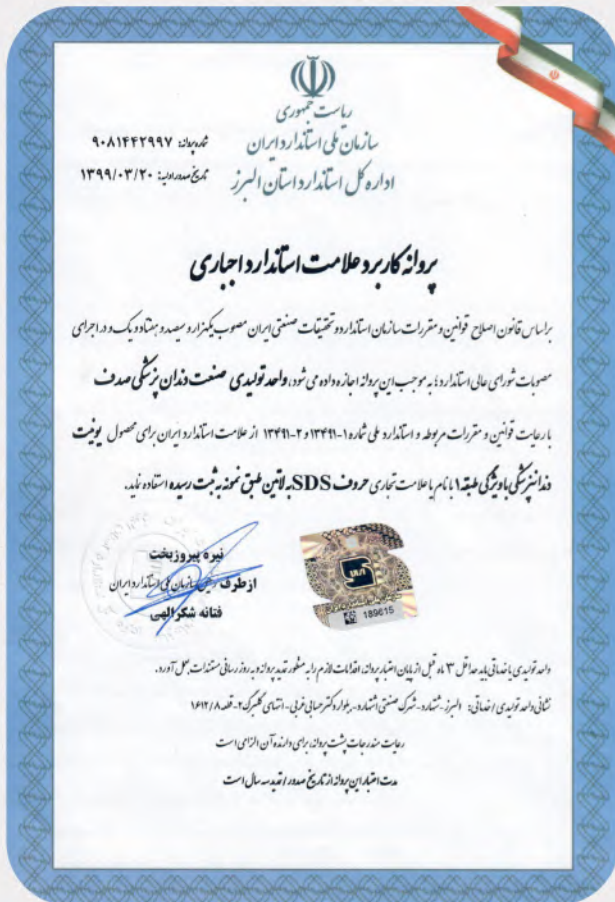 ریاست جمهوری
سازمان ملی استاندارد ایران
اداره کل استاندارد استان البرز
شماره پروانه: ۹۰۸۱۴۴۲۹۹۷
تاریخ صدور اولیه: ۱۳۹۹/۰۳/۲۰
پروانه کاربرد علامت استاندارد اجباری
براساس قانون اصلاح قوانین و مقررات سازمان استاندارد و تحقیقات صنعتی ایران مصوب یکهزار و سیصد و هفتاد و یک و در اجرای
مصوبات شورای عالی استاندارد، به موجب این پروانه اجازه داده می شود، واحد تولیدی صنعت دندان پزشکی صدف
با رعایت قوانین و مقررات مربوطه و استاندارد ملی شماره ۱-۱۳۴۹۱ و ۲-۱۳۴۹۱ از علامت استاندارد ایران برای محصول یونیت
دندانپزشکی با ویژگی طبقه ۱ با نام یا علامت تجاری حروف SDS به لاتین طبق نمونه به ثبت رسیده استفاده نماید.
نیره پیروزبخت
از طرف رئیس سازمان ملی استاندارد ایران
فتانه شکرالهی
189615
واحد تولیدی یا خدماتی باید حداقل ۳ ماه قبل از پایان اعتبار پروانه، اقدامات لازم را به منظور تمدید پروانه و به روز رسانی مستندات بعمل آورد.
نشانی واحد تولیدی / خدماتی: البرز - اشتهارد - شهرک صنعتی اشتهارد - بلوار دکتر حسابی غربی - انتهای گلبرگ ۲ - قطعه ۱۶۱۲/۸
رعایت مندرجات پشت پروانه، برای دارنده آن الزامی است
مدت اعتبار این پروانه از تاریخ صدور / تمدید سه سال است